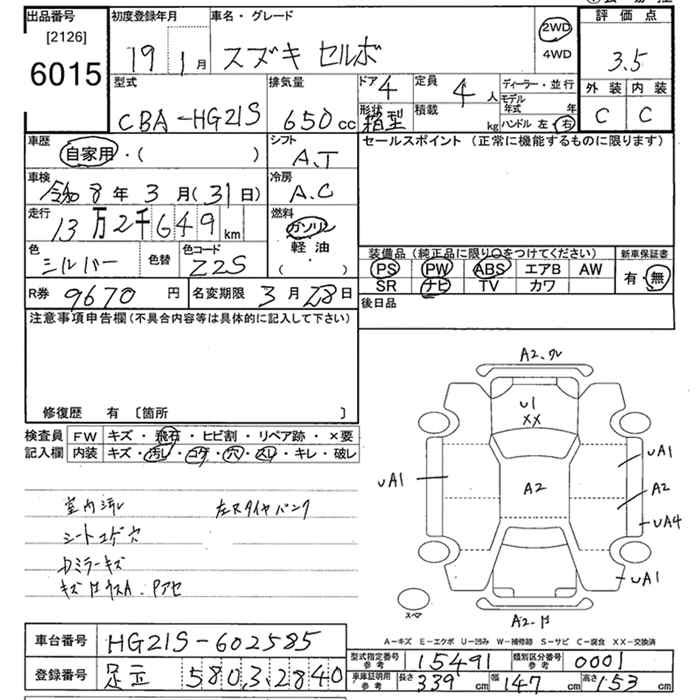 出品番号
[2126]
6015
初度登録年月
19 1月
車名・グレード
スズキ セルボ
2WD
4WD
評価点
3.5
外装 内装
C C
型式
CBA-HG21S
排気量
650cc
ドア 4
形状 箱型
定員 4人
積載 kg
ディーラー・並行
モデル年式 年
ハンドル 左・右
車歴
自家用・( )
シフト
A.T
セールスポイント (正常に機能するものに限ります)
車検
令和8年3月(31日)
冷房
A.C
走行
13万2千649km
燃料
ガソリン
軽油
( ・ )
色
シルバー
色替
色コード
Z2S
装備品 (純正品に限り○をつけてください)
PS PW ABS エアB AW
SR ナビ TV カワ
新車保証書
有・無
R券 9670円
名変期限 3月28日
後日品
注意事項申告欄(不具合内容等は具体的に記入して下さい)
修復歴 有 〔箇所 〕
検査員記入欄
FW キズ・飛石・ヒビ割・リペア跡・×要
内装 キズ・汚し・コゲ・穴・スレ・キレ・破レ
室内汚レ 左Rタイヤパンク
シートコゲ穴
Dミラーキズ
A2.ワレ
U1
XX
UA1
UA1
A2
A2
UA4
UA1
スペア
A-キズ E-エクボ U-凹み W-補修跡 S-サビ C-腐食 XX-交換済
車台番号 HG21S-602585
登録番号 足立 580 3 2840
型式指定番号 参考 15491
類別区分番号 参考 0001
車庫証明用 参考 長さ 339cm 幅 147cm 高さ 153cm